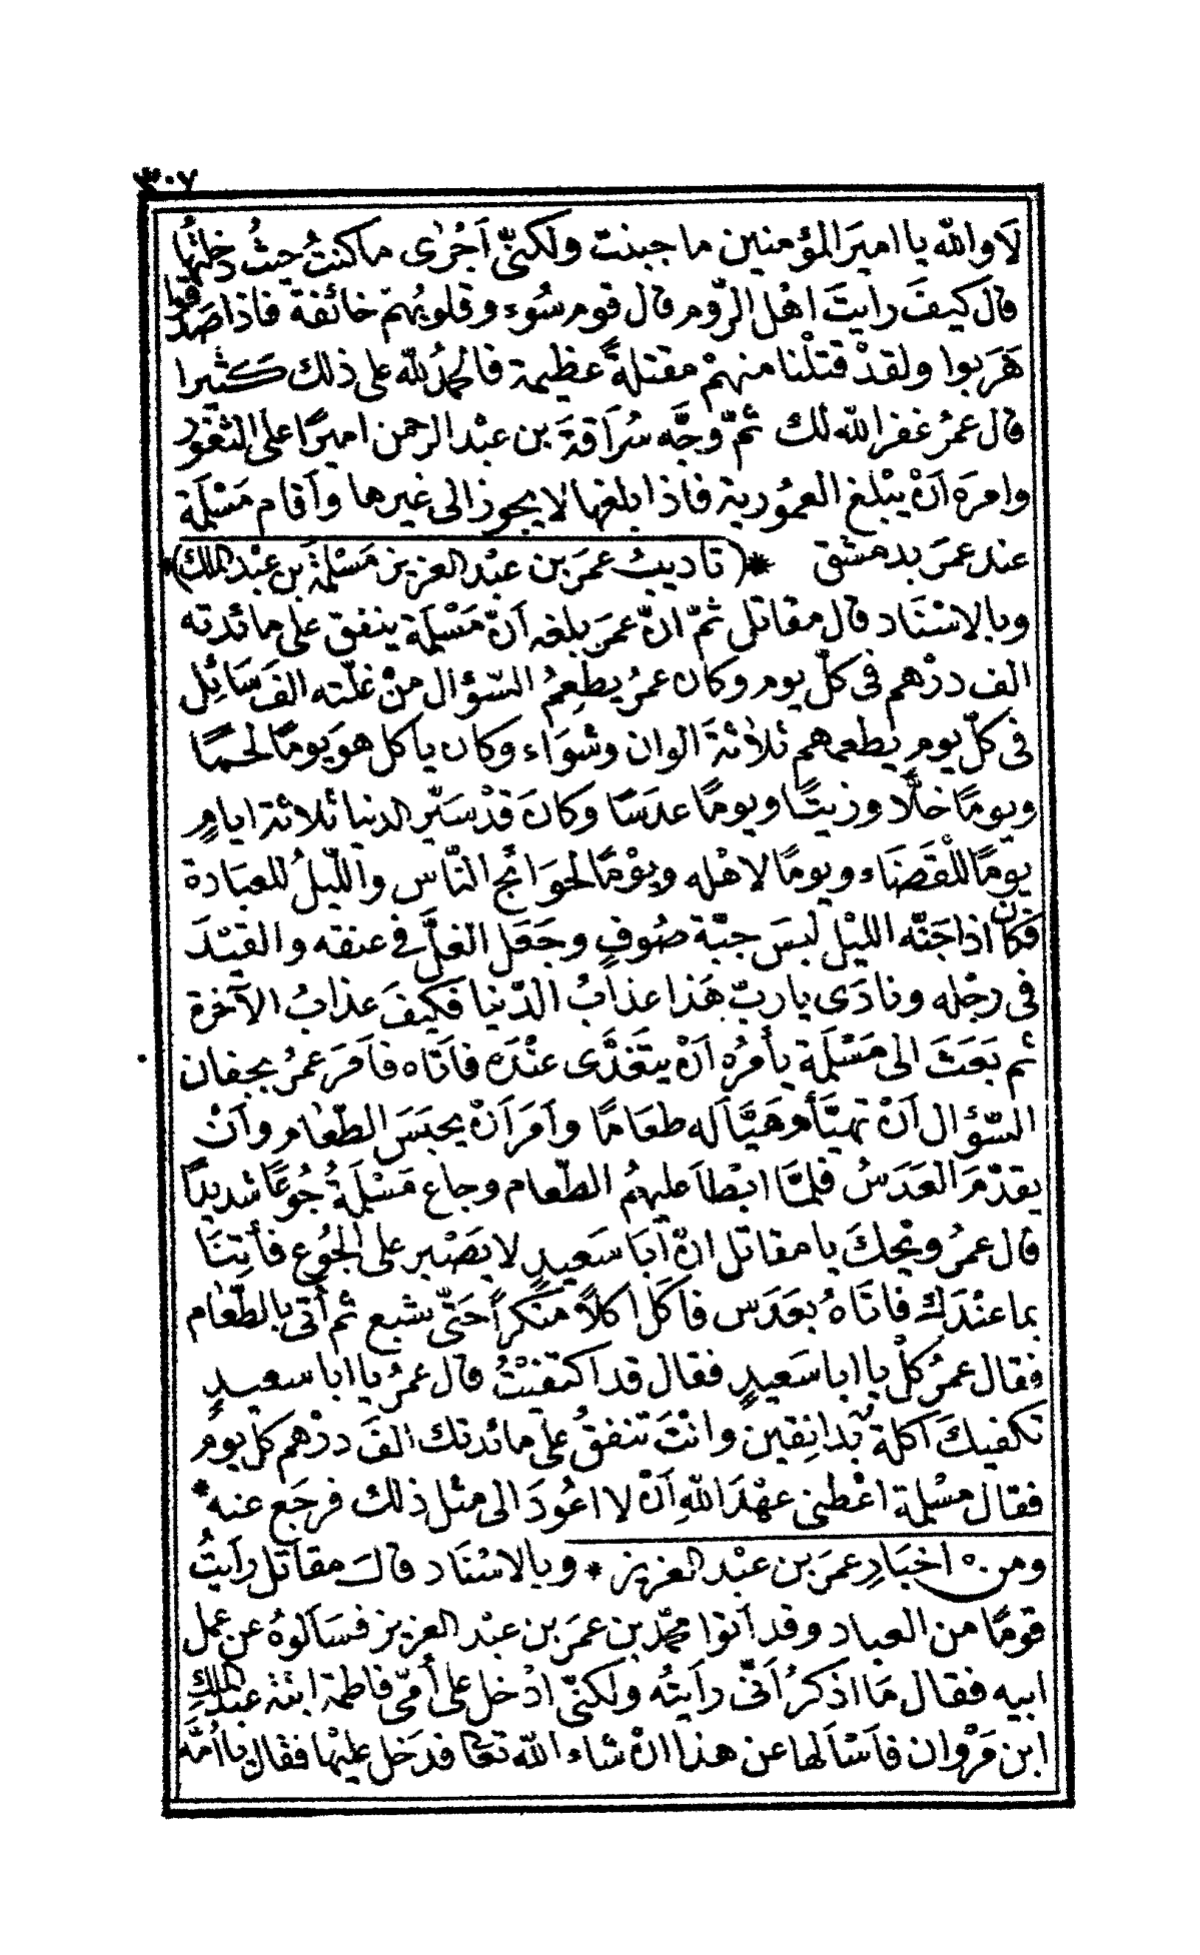 ٣٠٧
لَا والله يا اميرَ المؤمنين ما جبنت ولكنّى اَجْرٰى ماكنتُ حيثُ دخلتُها
قال كيفَ رايتَ اهْل الرّوم قال قوم سُوء وقلوبُهمْ خائفة فاذا صَدقوا
هَربوا ولقدْ قتلْنا منهمْ مقتلةً عظيمة فالحمدُ لله على ذلك كثيرا
قال عمرُ غفر الله لك ثمّ وجَّه سُرَاقةَ بن عبْد الرحمن اميرًا على الثغور
وامرَه اَنْ يبْلغ العمُورية فاذا بلغها لا يجوز الى غيرها واَقام مَسْلَمة
عند عمَر بدمشق *(تاديبُ عمَر بن عبْد العزيز مَسْلمةَ بن عبْد الملك)*
وبالاسْنَاد قال مقاتل ثمّ انّ عمَر بلغه اَنّ مَسْلَمة ينفق على مائدته
الف درْهم فى كلّ يوم وكان عمرُ يطْعِمُ السّؤال منْ غلّته الفَ سَائل
فى كلّ يوم يطعمهم ثلاثةَ الوان وشوَاء وكان ياكل هوَ يومًا لحمًا
ويومًا خلًّا وزيتًا ويومًا عدَسًا وكانَ قدْ سَيّر الدنيا ثلاثة ايامٍ
يومًا للْقضَاء ويومًا لاهْله ويوْمًا لحوَائج النّاس والليلُ للعبَادة
فكان اذا جَنّه الليْل لبسَ جبّة صُوفٍ وجَعَل الغلَّ فى عنقه والقيْدَ
فى رجْله ونادَى ياربّ هَذا عذابُ الدّنيا فكيفَ عذابُ الآخرة
ثم بَعَثَ الى مَسْلَمة يأمُره اَنْ يتغَدَّى عنْدَه فاَتاه فاَمَر عمرُ بجفان
السّؤال اَنْ تهيّأ وهَيّأ له طعَامًا واَمَر اَنْ يحبَسَ الطّعام واَنْ
يقدّمَ العَدَسُ فلمَّا ابْطاَ عليهمُ الطّعام وجاع مَسْلَمةُ جُوعًا شديدًا
قال عمرُ ويْحكَ يا مقاتل انّ اَبَا سَعيدٍ لا يصْبر على الجُوع فأتِنَا
بما عنْدَك فاتَاهُ بعَدَس فاَكَلَ اكلاً منكراً حَتّى شبع ثم أتى بالطّعَام
فقال عمرُ كلْ يا ابا سَعيدٍ فقال قد اكتفيْتُ قال عمرُ يا ابا سعيدٍ
تكفيكَ اَكلة بدانِقين وانْتَ تنفقُ على مائدتك الفَ درْهم كل يوم
فقال مسْلمة اعْطنى عهْدَ اللهِ اَنْ لا اعُودَ الى مثل ذلك فرجَع عنه *
ومن اخبَارِ عمَر بن عبْد العزيز * وبالاسْنَاد قال مقاتل رايتُ
قومًا من العباد وقد اَتوا محمّد بن عمَر بن عبْد العزيز فسَاَلوهُ عن عمل
ابيه فقال مَا اذكرُ اَنّى رايتُه ولكنّى ادْخل على أمّى فاطمة ابنة عبْد الملك
ابن مَرْوان فاَسْاَلها عن هذا انْ شاء الله تعا فدخل عليْها فقال يا اُمَّه